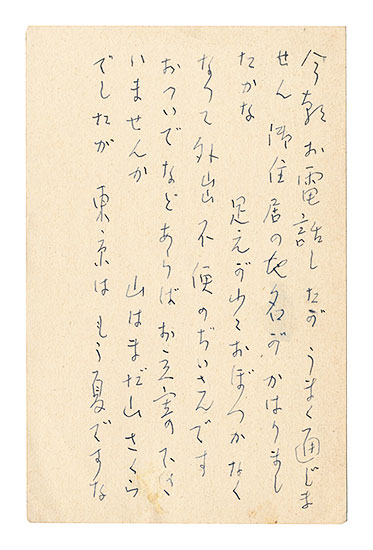 今朝お電話したが うまく通じま
せん 御住居の地名がかはりまし
たかな 足元が少々おぼつかなく
なつて外出不便のぢいさんです
おついでなどあらばお立寄り下さ
いませんか 山はまだ山さくら
でしたが 東京はもう夏ですな